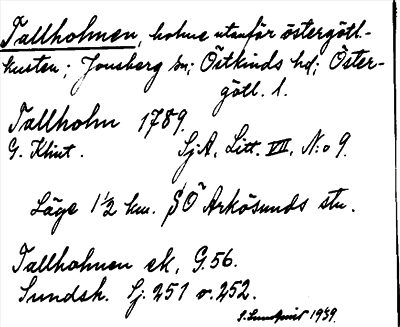 Tallholmen, holme utanför östergötl-
kusten; Jonsberg sn; Östkinds hd; Öster-
götl. l.
Tallholm 1789.
G. Klint. SjA, Litt. VII, N:o 9.
Läge 1 1/2 km. SÖ Arkösunds stn.
Tallholmen ek, G.56.
Sundsh. Sj. 251 o. 252.
S. Lundqvist 1939.